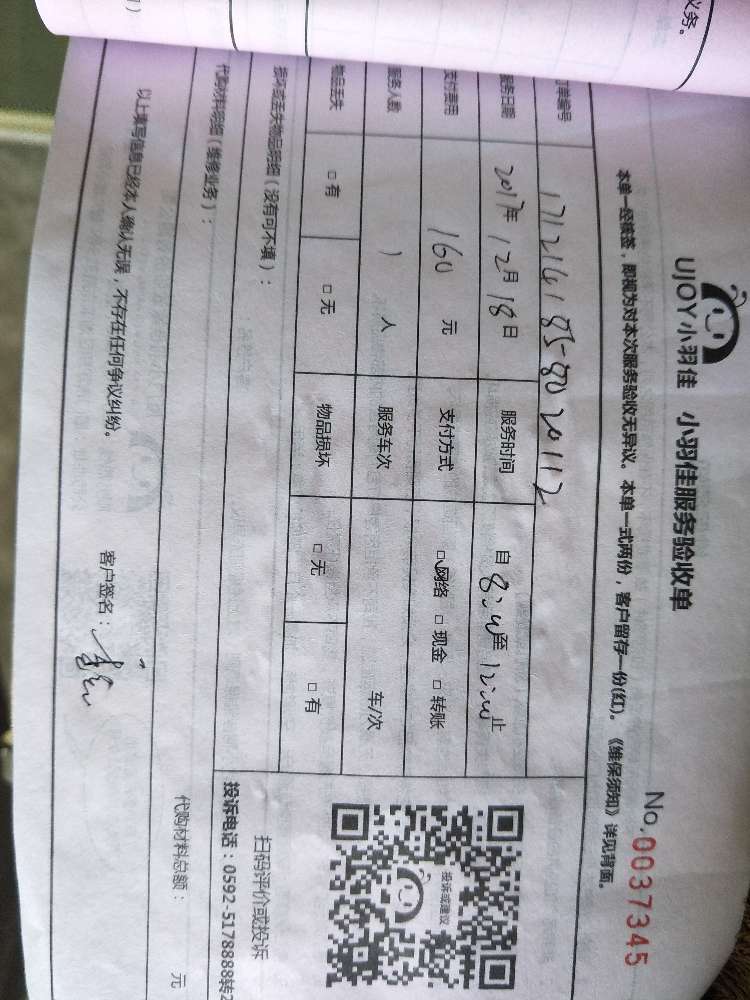 义务。
1）
UJOY小羽佳 小羽佳服务验收单
No.0037345
本单一经续签，即视为对本次服务验收无异议。本单一式两份，客户留存一份(红)。《维保须知》详见背面。
订单编号
服务日期 2017年 12月 18日 服务时间 自 8:00 至 12:00 止
支付费用 160 元 支付方式 □网络 □现金 □转账
服务人数 1 人 服务车次 车/次
物品丢失 □有 □无 物品损坏 □无 □有
投诉或建议
损坏或丢失物品明细（没有可不填）：
扫码评价或投诉
投诉电话：0592-5178888转2
代购材料明细（维修业务）：
代购材料总额： 元
以上填写信息已经本人确认无误，不存在任何争议纠纷。 客户签名：